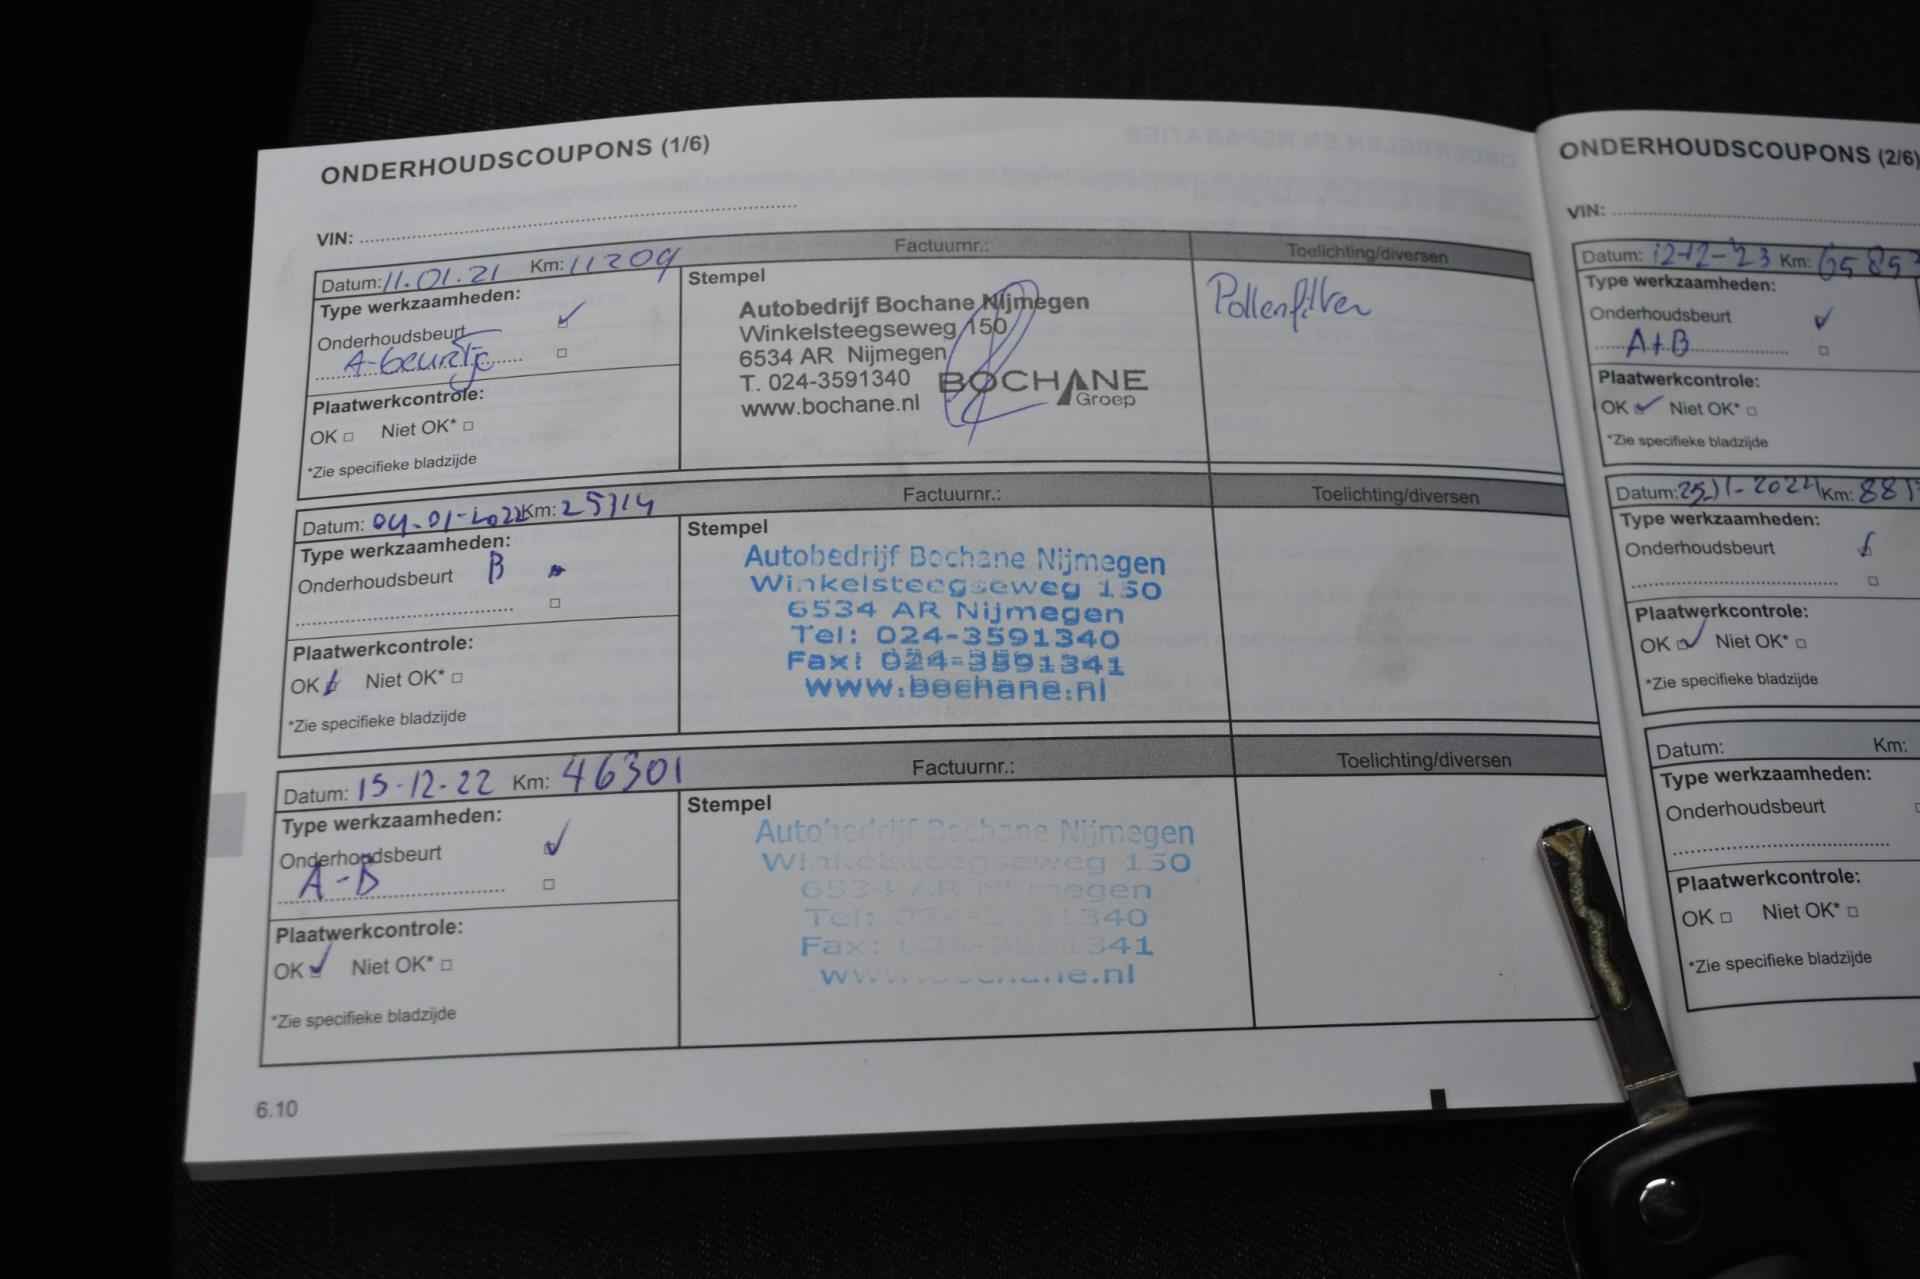 ONDERHOUDSCOUPONS (1/6)
VIN:
Datum: 11.01.21 Km: 11209 Factuurnr.: Toelichting/diversen
Type werkzaamheden:
Onderhoudsbeurt
A-beurtje
Plaatwerkcontrole:
OK Niet OK*
*Zie specifieke bladzijde
Stempel
Autobedrijf Bochane Nijmegen
Winkelsteegseweg 150
6534 AR Nijmegen
T. 024-3591340
www.bochane.nl
BOCHANE
Groep
Pollenfilter
Datum: 04-01-2022 Km: 25714 Factuurnr.: Toelichting/diversen
Type werkzaamheden:
Onderhoudsbeurt B
Plaatwerkcontrole:
OK Niet OK*
*Zie specifieke bladzijde
Stempel
Autobedrijf Bochane Nijmegen
Winkelsteegseweg 150
6534 AR Nijmegen
Tel: 024-3591340
Fax: 024-3591341
www.bochane.nl
Datum: 15-12-22 Km: 46301 Factuurnr.: Toelichting/diversen
Type werkzaamheden:
Onderhoudsbeurt
A-B
Plaatwerkcontrole:
OK Niet OK*
*Zie specifieke bladzijde
Stempel
Autobedrijf Bochane Nijmegen
Winkelsteegseweg 150
6534 AR Nijmegen
Tel: 024-3591340
Fax: 024-3591341
www.bochane.nl
6.10
ONDERHOUDSCOUPONS (2/6)
VIN:
Datum: 12-12-'23 Km: 6585
Type werkzaamheden:
Onderhoudsbeurt
A+B
Plaatwerkcontrole:
OK Niet OK*
*Zie specifieke bladzijde
Datum: 25-11-2024 Km: 881
Type werkzaamheden:
Onderhoudsbeurt
Plaatwerkcontrole:
OK Niet OK*
*Zie specifieke bladzijde
Datum: Km:
Type werkzaamheden:
Onderhoudsbeurt
Plaatwerkcontrole:
OK Niet OK*
*Zie specifieke bladzijde